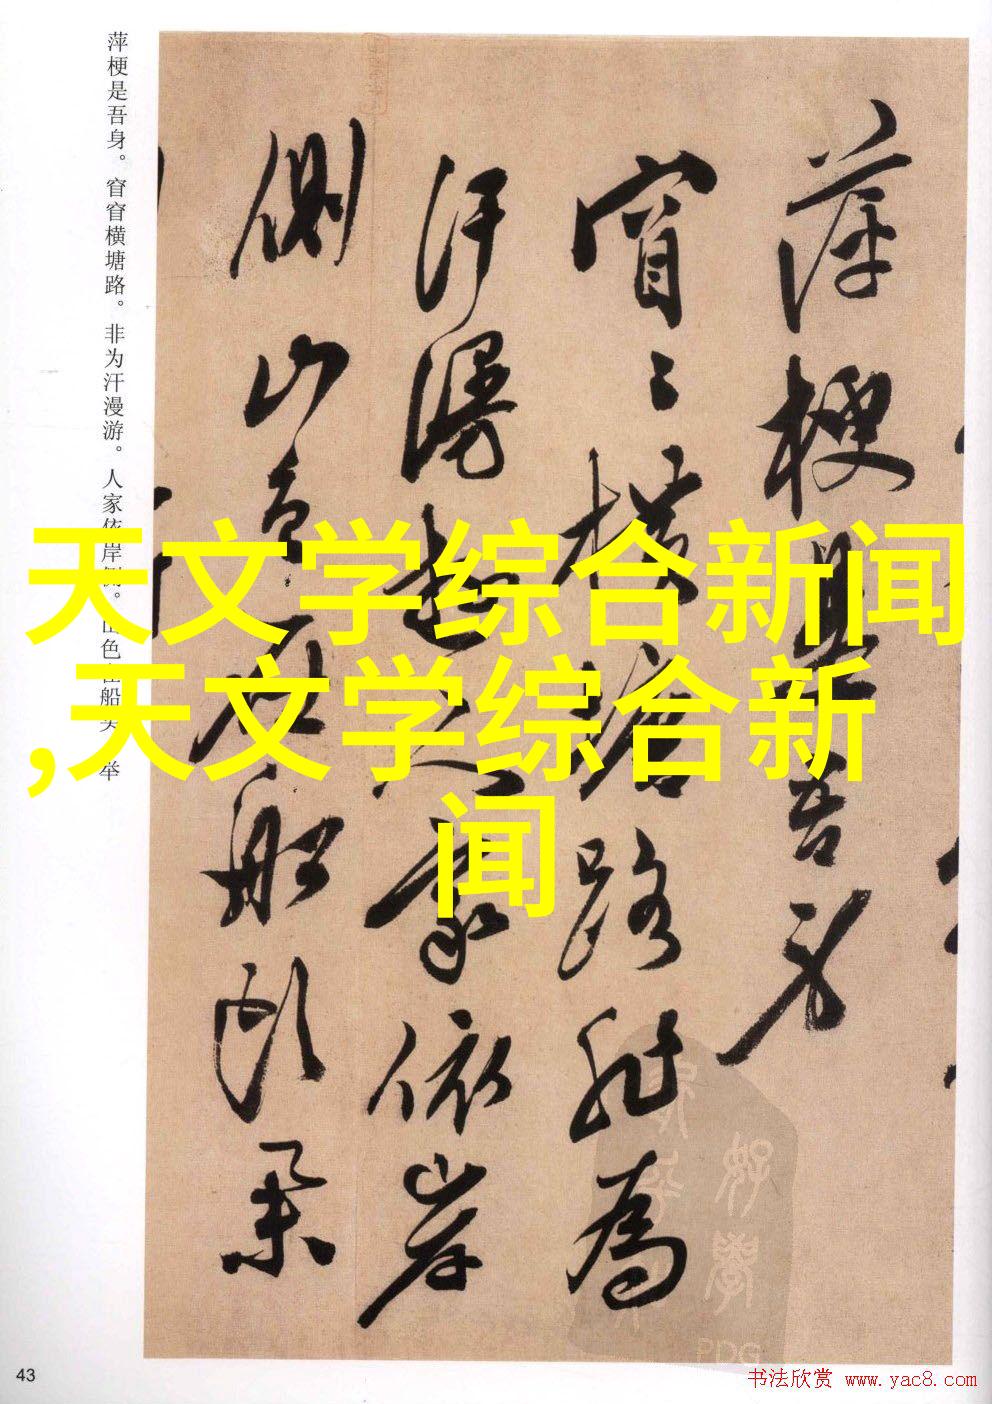 萍梗是吾身。窅窅横塘路。非为汗漫游。人家依岸侧。山色在船头。举
萍梗是吾身
窅〻横塘路非为
汗漫遊人家依岸
侧山色在船头朵
天文学综合新闻
,天文学综合新
闻
43
PDG
书法欣赏 www.yac8.com